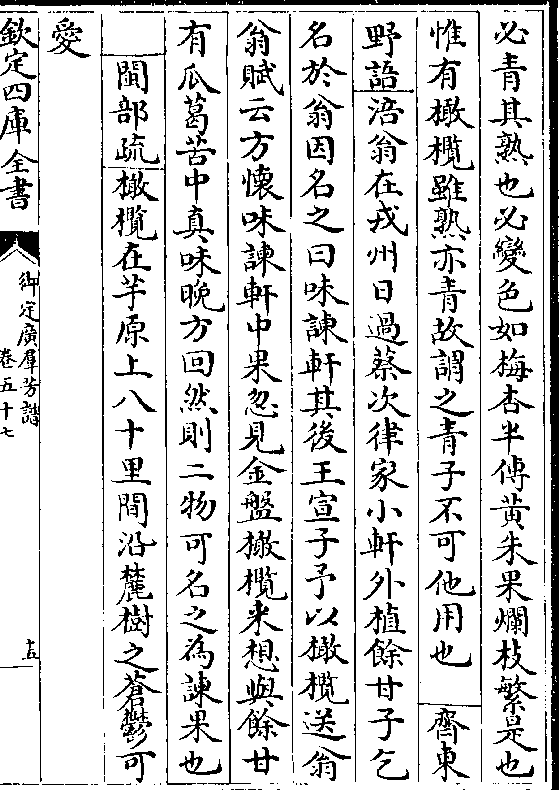 必青其熟也必變色如梅杏半傅黄朱果爛枝繁是也
惟有橄欖雖熟亦青故謂之青子不可他用也 齊東
野語涪翁在戎州日過蔡次律家小軒外植餘甘子乞
名於翁因名之曰味諫軒其後王宣子予以橄欖送翁
翁賦云方懷味諫軒中果忽見金盤橄欖来想與餘甘
有瓜葛苦中真味晚方回然則二物可名之為諫果也
閩部疏橄欖在芋原上八十里間沿麓樹之蒼鬱可
愛
欽定四庫全書
御定廣羣芳譜
卷五十七
十五